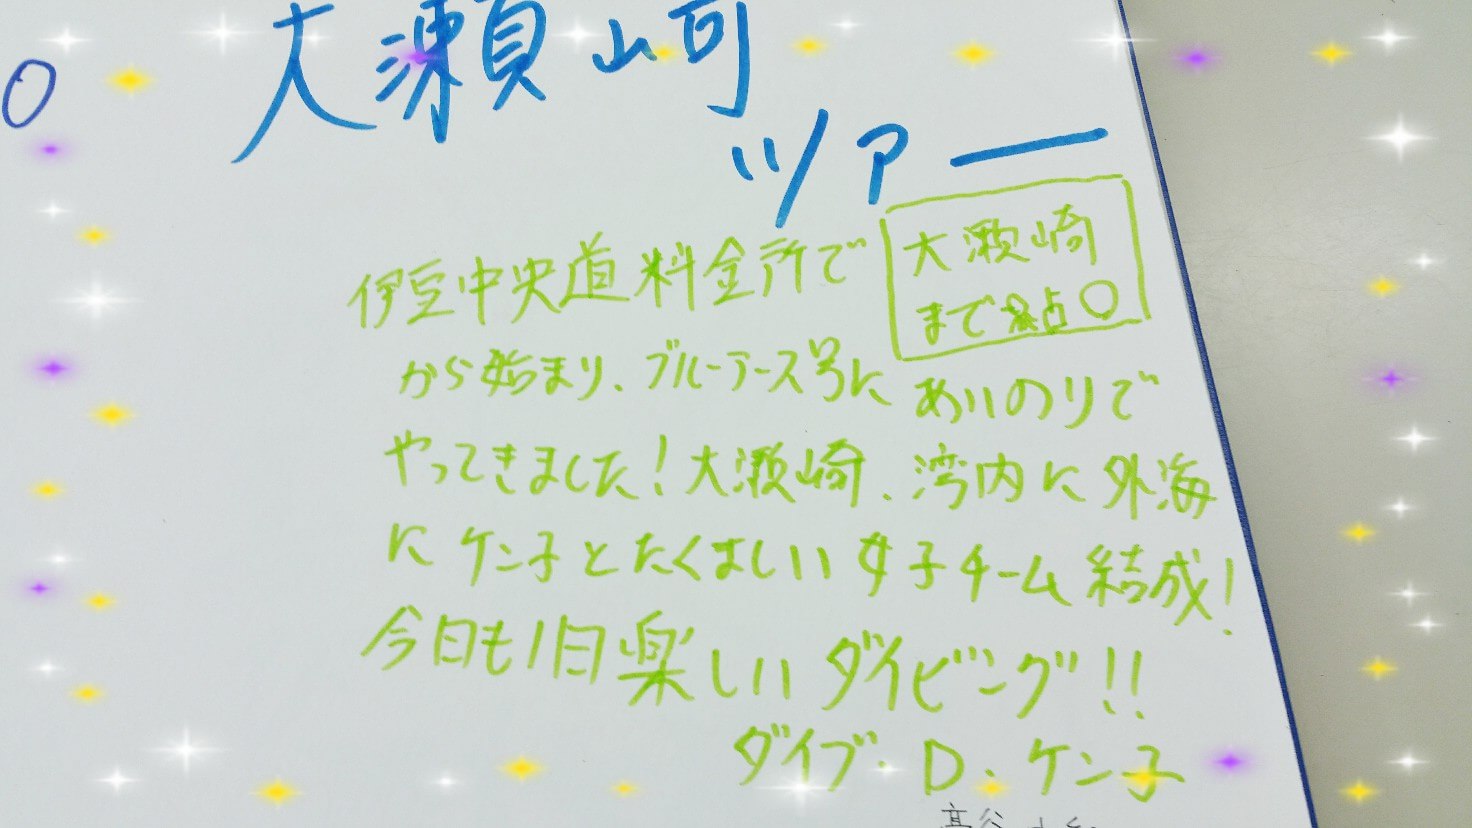 大瀬崎
ツアー
伊豆中央道料金所で
大瀬崎
まで 点〇
から始まり、ブルーアース号に あいのりで
やってきました!大瀬崎、湾内に外海
にケン子とたくましい女子チーム結成!
今日も1日楽しいダイビング!!
ダイブ・D・ケン子